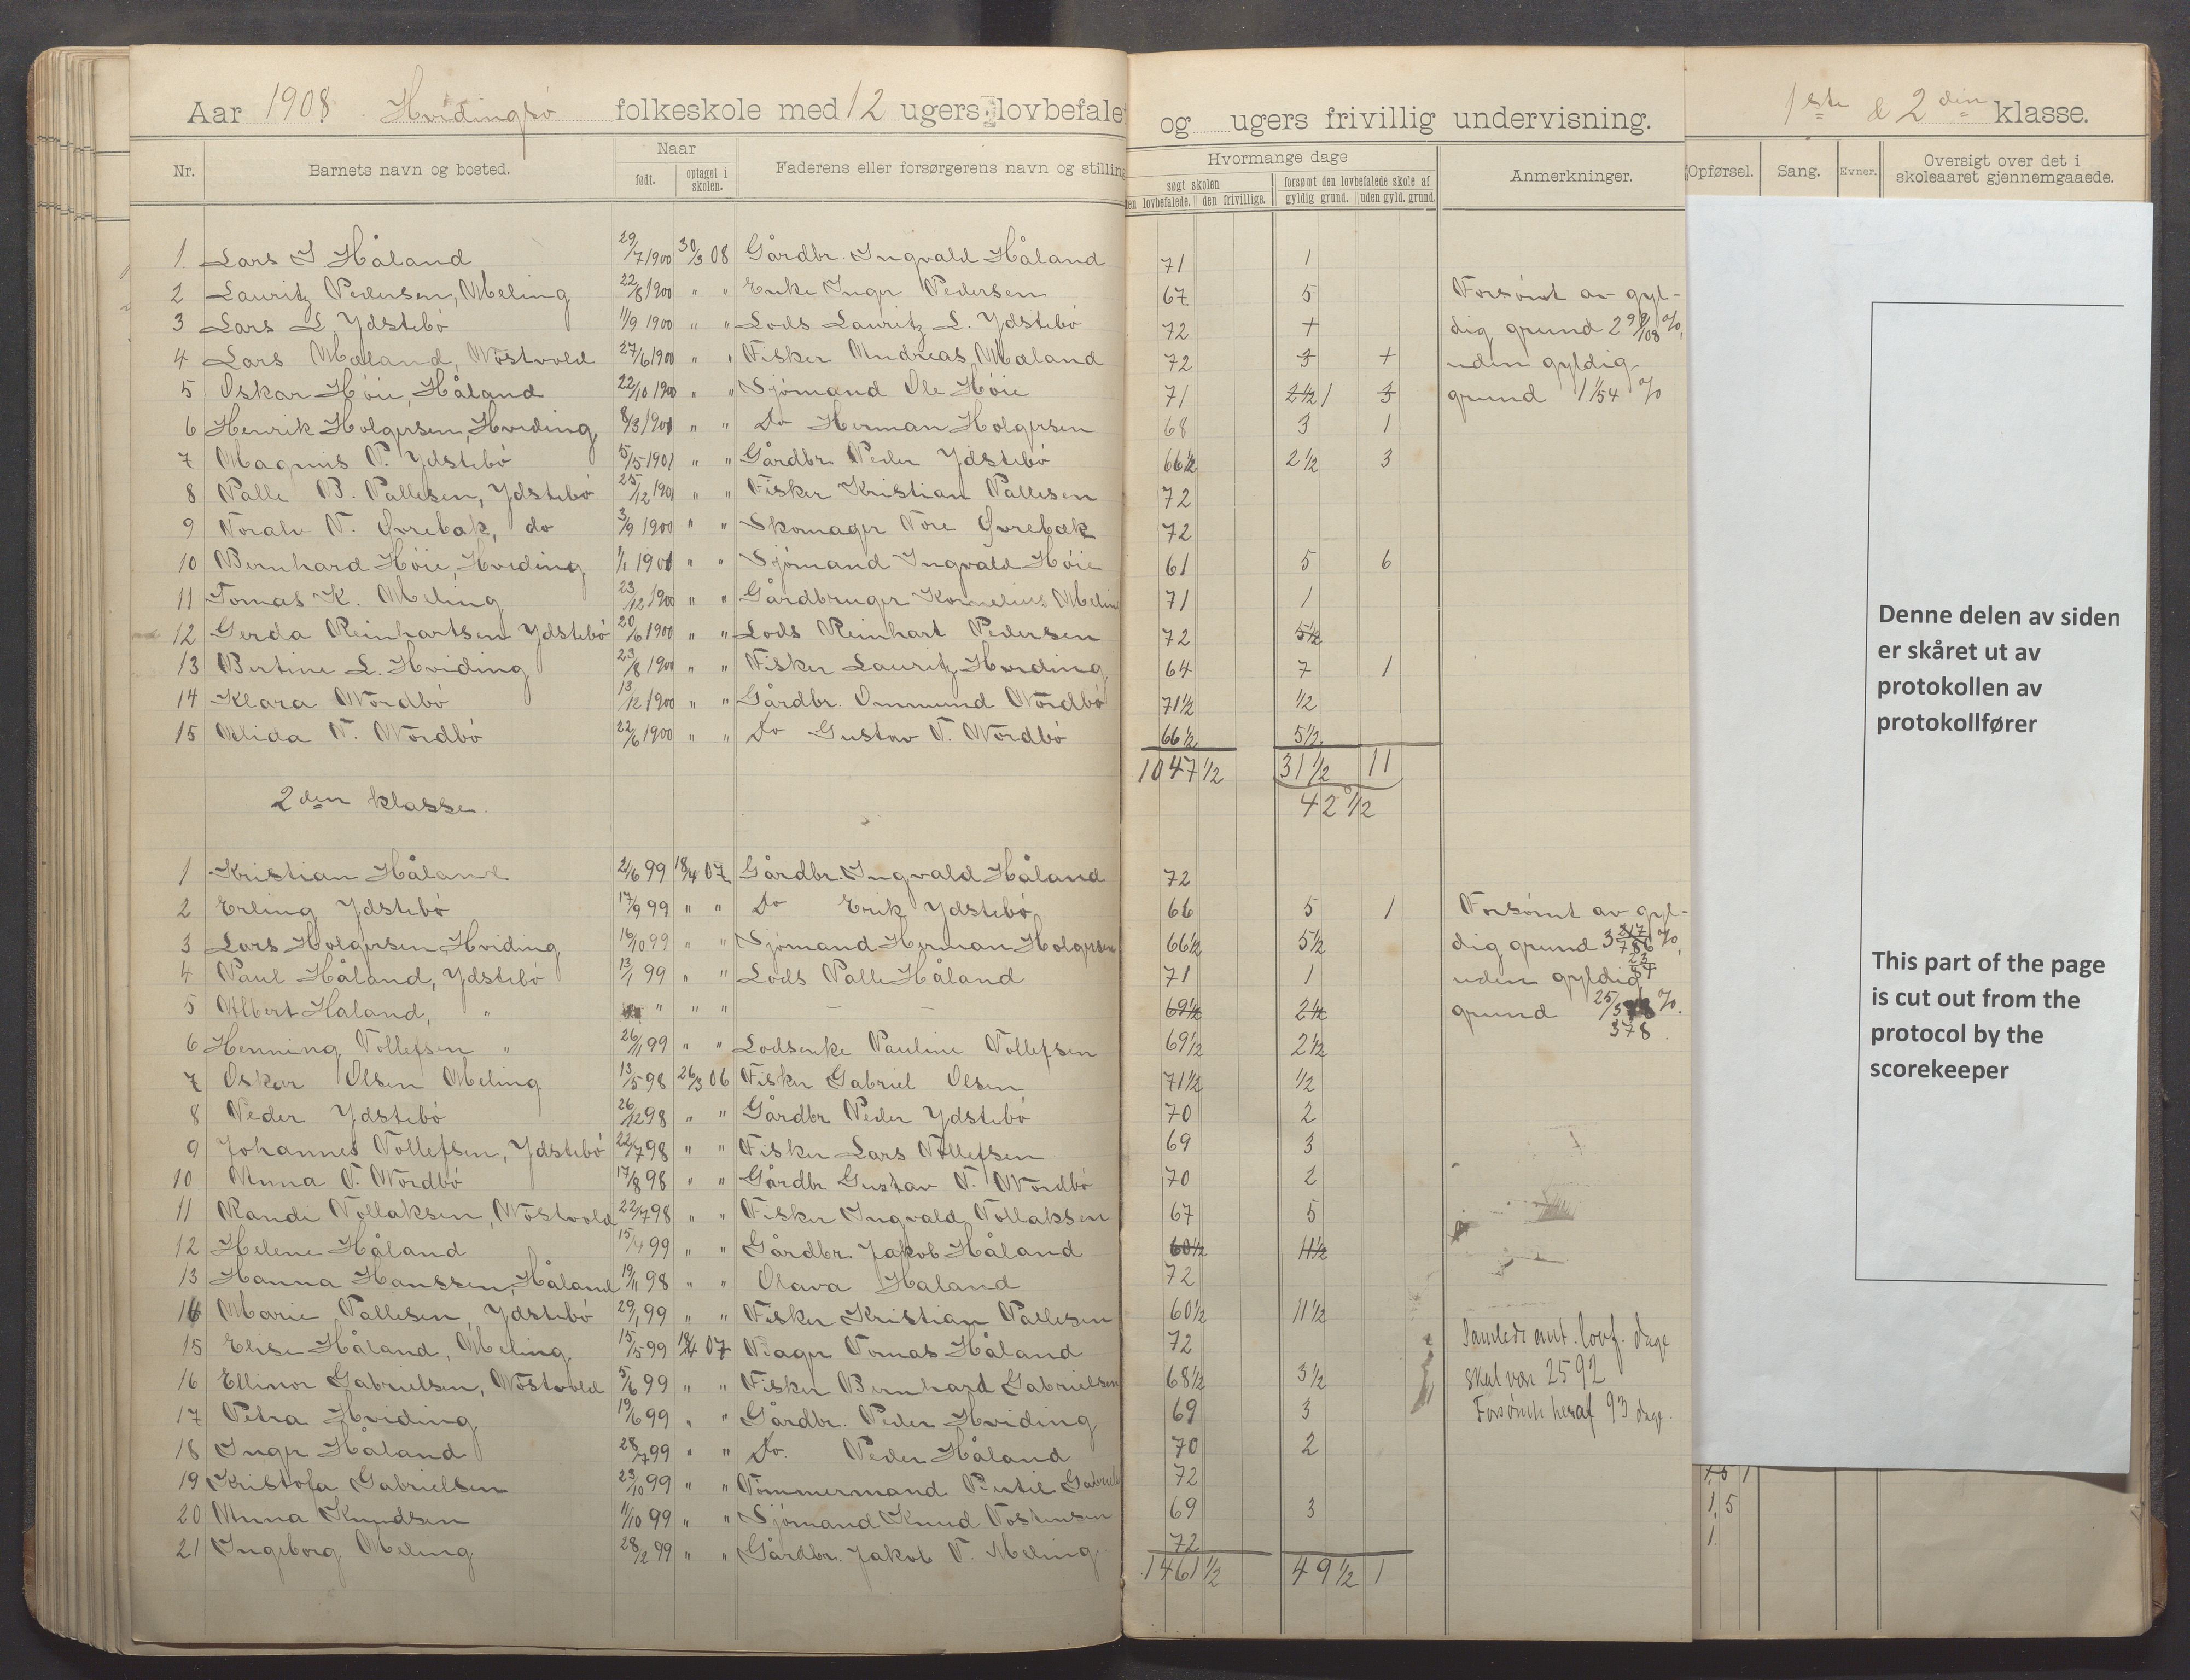 Aar 1908. Hvidingsö folkeskole med 12 ugers lovbefalet og ugers frivillig undervisning. 1ste & 2den klasse.
Nr. Barnets navn og bosted. Naar født. optaget i skolen. Faderens eller forsørgerens navn og stilling Hvormange dage søgt skolen den lovbefalede. den frivillige. forsømt den lovbefalede skole af gyldig grund. uden gyld. grund. Anmerkninger. Opførsel. Sang. Evner. Oversigt over det i skoleaaret gjennemgaaede.
1 Lars I. Håland 29/7 1900 30/3 08 Gårdbr. Ingvald Håland 71 1
2 Lauritz Pedersen, Meling 22/8 1900 " " Enke Inger Pedersen 67 5 Forsömt av gyl-
3 Lars L. Ydstebö 11/9 1900 " " Lods Lauritz L. Ydstebö 72 dig grund 2 99/108 %,
4 Lars Mæland, Nostvold 27/6 1900 " " Fisker Andreas Mæland 72 uden gyldig
5 Oskar Höie, Håland 22/10 1900 " " Sjömand Ole Höie 71 2 1/2 1 3 grund 1 1/54 %
6 Henrik Holgersen, Hviding 8/3 1901 " " Do Herman Holgersen 68 3 1
7 Magnus P. Ydstebö 5/5 1901 " " Gårdbr. Peder Ydstebö 66 1/2 2 1/2 3
8 Palle B. Pallesen, Ydstebö 25/12 1901 " " Fisker Kristian Pallesen 72
9 Toralv T. Øvrebæk, do 3/9 1900 " " Skomager Tore Øvrebæk 72
10 Bernhard Höie, Hviding 1/1 1901 " " Sjömand Ingvald Höie 61 5 6
11 Tomas K. Meling 23/12 1900 " " Gårdbruger Kornelius Meling 71 1
12 Gerda Reinhartsen Ydstebö 20/6 1900 " " Lods Reinhart Pedersen 72 5 1/2
13 Bertine L. Hviding 23/8 1900 " " Fisker Lauritz Hviding 64 7 1
14 Klara Nordbö 13/12 1900 " " Gårdbr. Ommund Nordbö 71 1/2 1/2
15 Alida T. Nordbö 22/6 1900 " " Do Gustav T. Nordbö 66 1/2 5 1/2
1047 1/2 31 1/2 11
2den klasse. 42 1/2
1 Kristian Håland 21/6 99 18/4 07 Gårdbr. Ingvald Håland 72
2 Erling Ydstebö 17/9 99 " " Do Erik Ydstebö 66 5 1 Forsömt av gyl-
3 Lars Holgersen Hviding 16/10 99 " " Sjömand Herman Holgersen 66 1/2 5 1/2 dig grund 3 %,
4 Paul Håland, Ydstebö 13/1 99 " " Lods Palle Håland 71 1 uden gyldig
5 Albert Håland, " " " " — — 69 1/2 2 1/2 grund 25/378 %.
6 Henning Tollefsen " 26/11 99 " " Lodsenke Pauline Tollefsen 69 1/2 2 1/2 378
7 Oskar Olsen Meling 13/5 98 26/3 06 Fisker Gabriel Olsen 71 1/2 1/2
8 Peder Ydstebö 26/12 98 " " Gårdbr. Peder Ydstebö 70 2
9 Johannes Tollefsen, Ydstebö 22/7 98 " " Fisker Lars Tollefsen 69 3
10 Anna T. Nordbö 17/8 98 " " Gårdbr Gustav T. Nordbö 70 2
11 Randi Tollaksen, Nostvold 22/7 98 " " Fisker Ingvald Tollaksen 67 5
12 Helene Håland 15/4 99 " " Gårdbr. Jakob Håland 60 1/2 11 1/2
13 Hanna Hanssen, Håland 19/11 98 " " Olava Håland 72
14 Marie Pallesen, Ydstebö 29/1 99 " " Fisker Kristian Pallesen 60 1/2 11 1/2
15 Elise Håland, Meling 15/5 99 18/4 07 Tomas Håland 72 Samlede ant. lovf. dage
16 Ellinor Gabrielsen, Nostvold 5/6 99 " " Fisker Bernhard Gabrielsen 68 1/2 3 1/2 skal være 2592
17 Petra Hviding 19/6 99 " " Gårdbr. Peder Hviding 69 3 Forsømte heraf 93 dage.
18 Inger Håland 28/7 99 " " Do. Peder Håland 70 2
19 Kristofa Gabrielsen 23/10 99 " " Tömmermand Bertil Gabriels 72
20 Anna Knudsen 11/10 99 " " Sjömand Knud Tostensen 69 3
21 Ingeborg Meling 28/2 99 " " Gårdbr. Jakob T. Meling 72
1461 1/2 49 1/2 1
Denne delen av siden
er skåret ut av
protokollen av
protokollfører
This part of the page
is cut out from the
protocol by the
scorekeeper
1,5 1
1,5
1